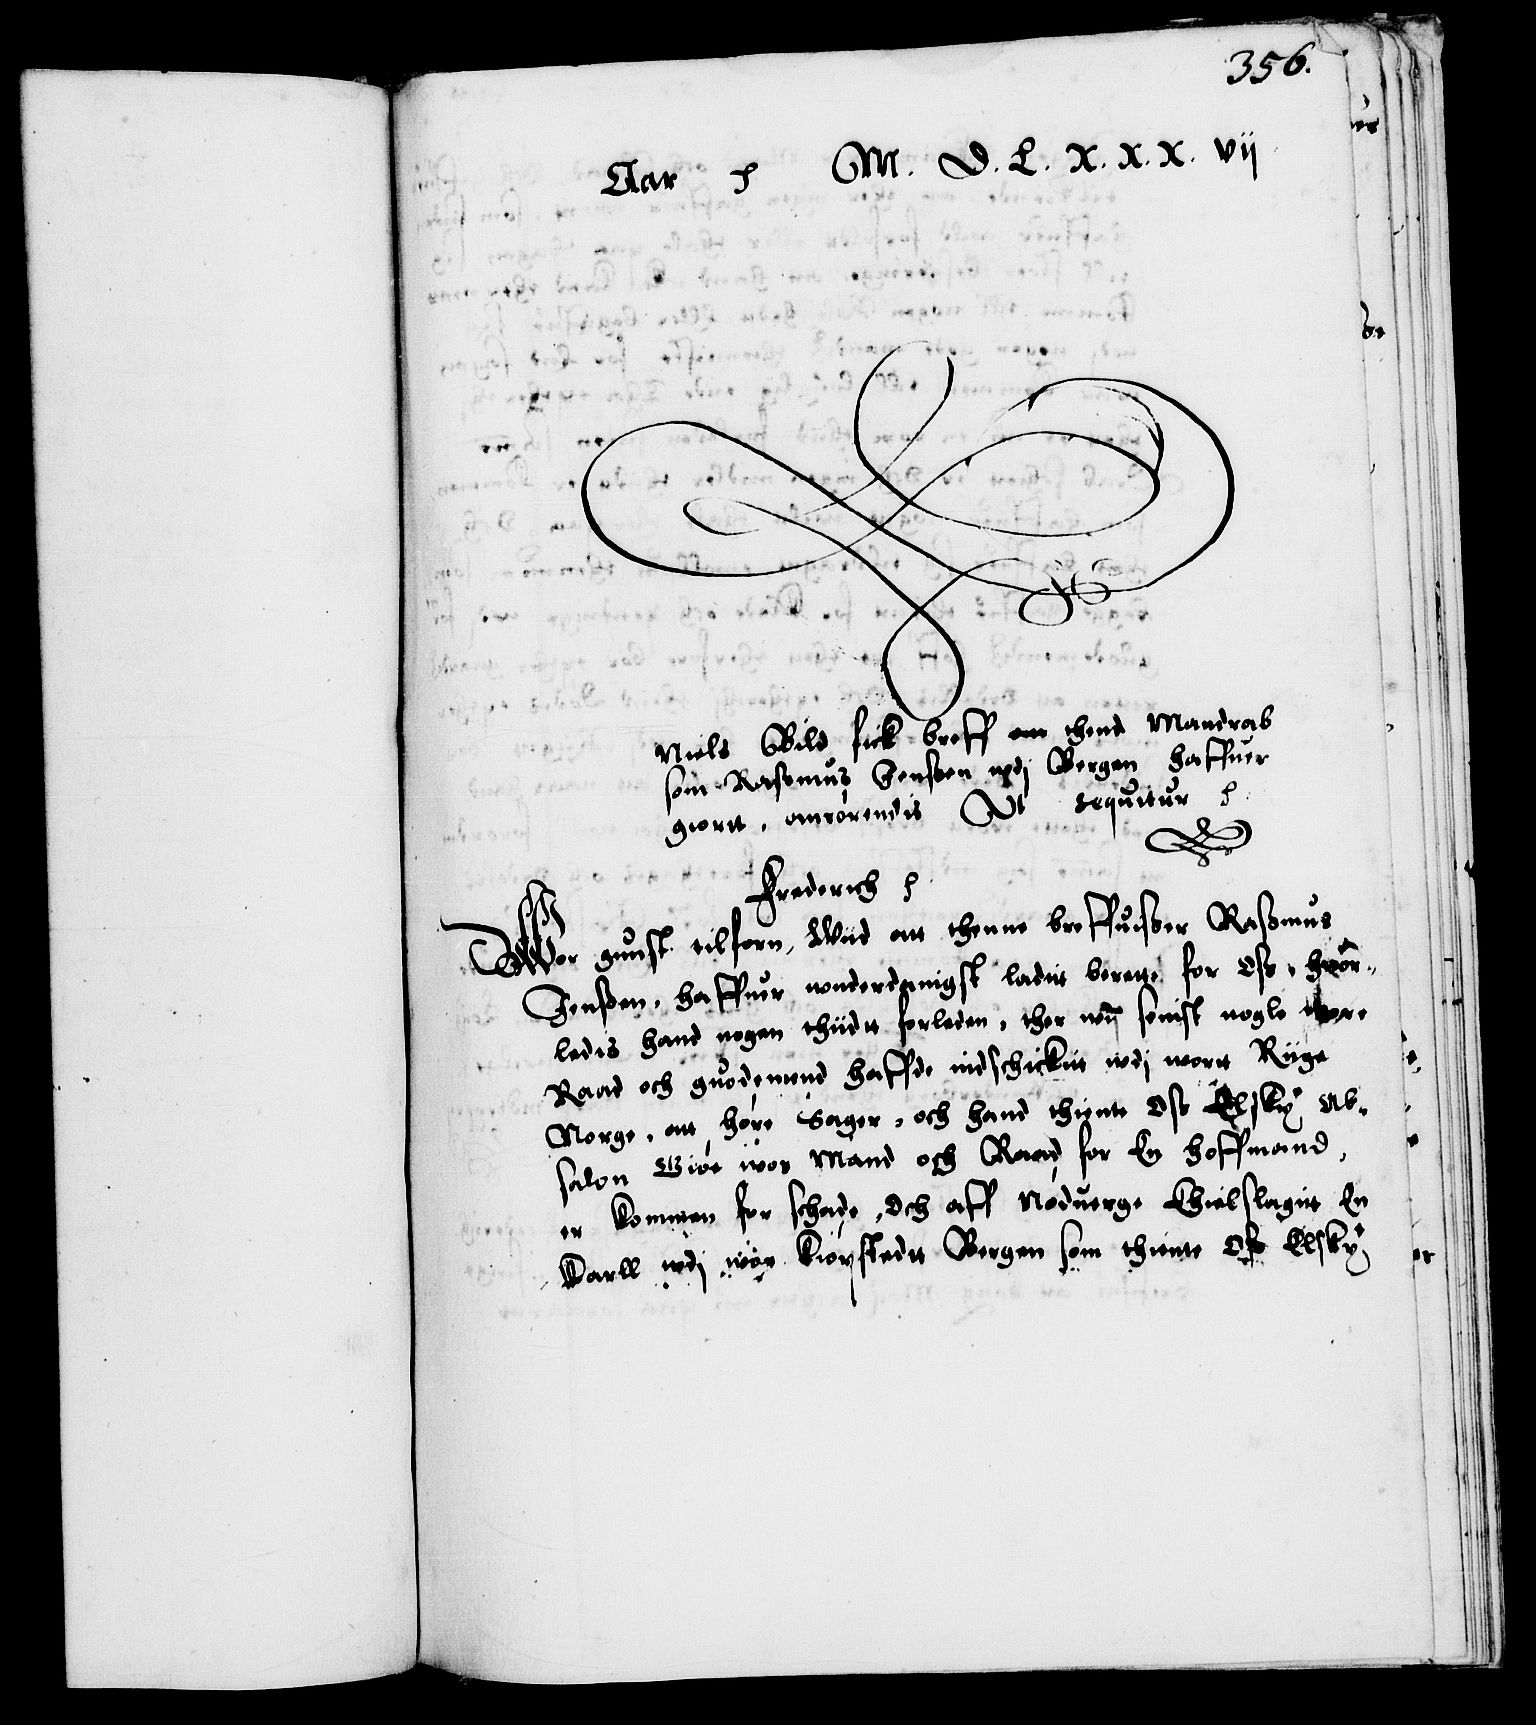 356.
Aar M. D. L. X. X. X. vij
Niels Bild fick breff om thend Mandrab
som Rasmus Jenssen vdj Bergen haffuer
giortt, anrörendis Vt sequitur
Frederich
Wor gunst tilforn, Wiid att thenne breffuisser Rasmus
Jenssen, haffuer wnderdanigst ladit berette for Oss, huor-
ledis hand nogen thiidt forleden, ther wij senist nogle wore
Raad och guodemend haffde indschickit wdj wortt Riige
Norge, att höre Sager, och hand thiente Oss Elskẏ Ab-
salon Giöe wor Mand och Raad for En hoffmand,
er kommen for schade, Och aff Nöduerge Ihielslagit En
Karll wdj wor Kiöpstedtt Bergen som thiente Oss Elskẏ